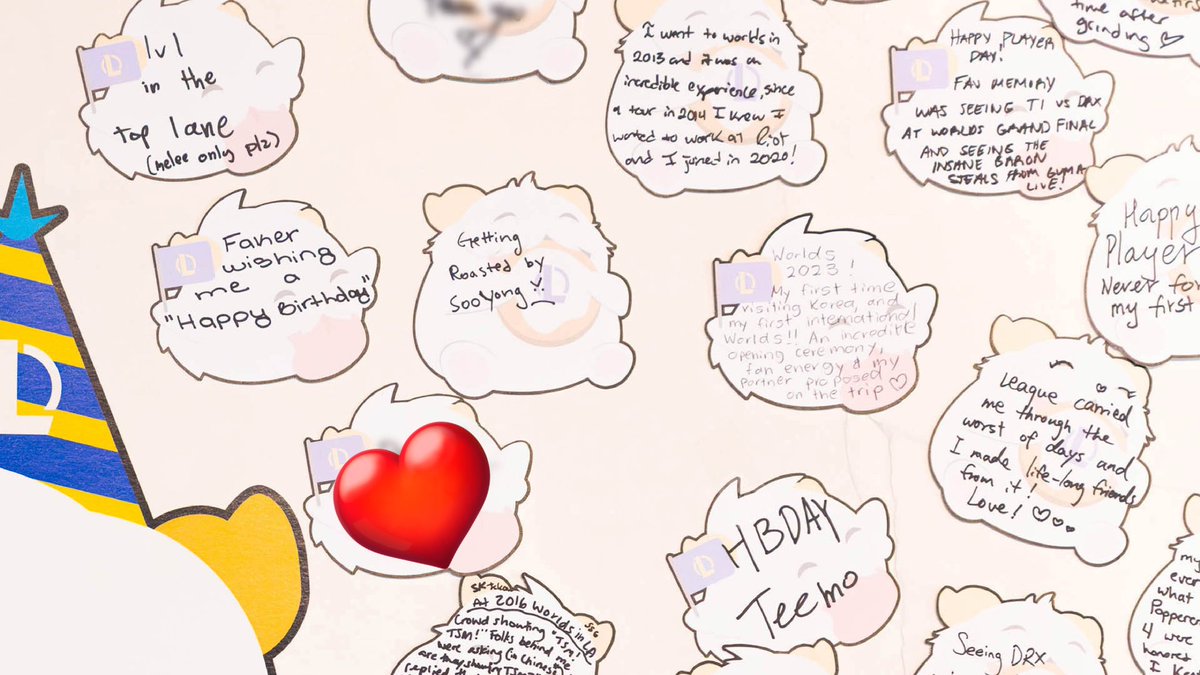 lvl
in the
top lane
(melee only plz)
I want to worlds in
2013 and it was an
incredible experience, since
a tour in 2014 I knew I
wanted to work at Riot
and I joined in 2020!
time after
grinding
HAPPY PLAYER
DAY!
FAV MEMORY
WAS SEEING T1 VS DRX
AT WORLDS GRAND FINAL
AND SEEING THE
INSANE BARON
STEALS FROM GUMA
LIVE!
Faker
wishing
me a
"Happy Birthday"
Getting
Roasted by
SooYong
Worlds
2023!
My first time
visiting Korea, and
my first international
Worlds!! An incredible
opening ceremony,
fan energy & my
partner proposed
on the trip ♡
Happy
Player
Never for
my first
League carried
me through the
worst of days and
I made life-long friends
from it!
Love! ♡♡♡
HBDAY
Teemo
At 2016 Worlds in LA,
SSG
Crowd shouting "TSM!
TSM!" Folks behind me
were asking (in Chinese)
are they shouting TSM
replied
my
ever
what
4 were
honored
I
Seeing DRX